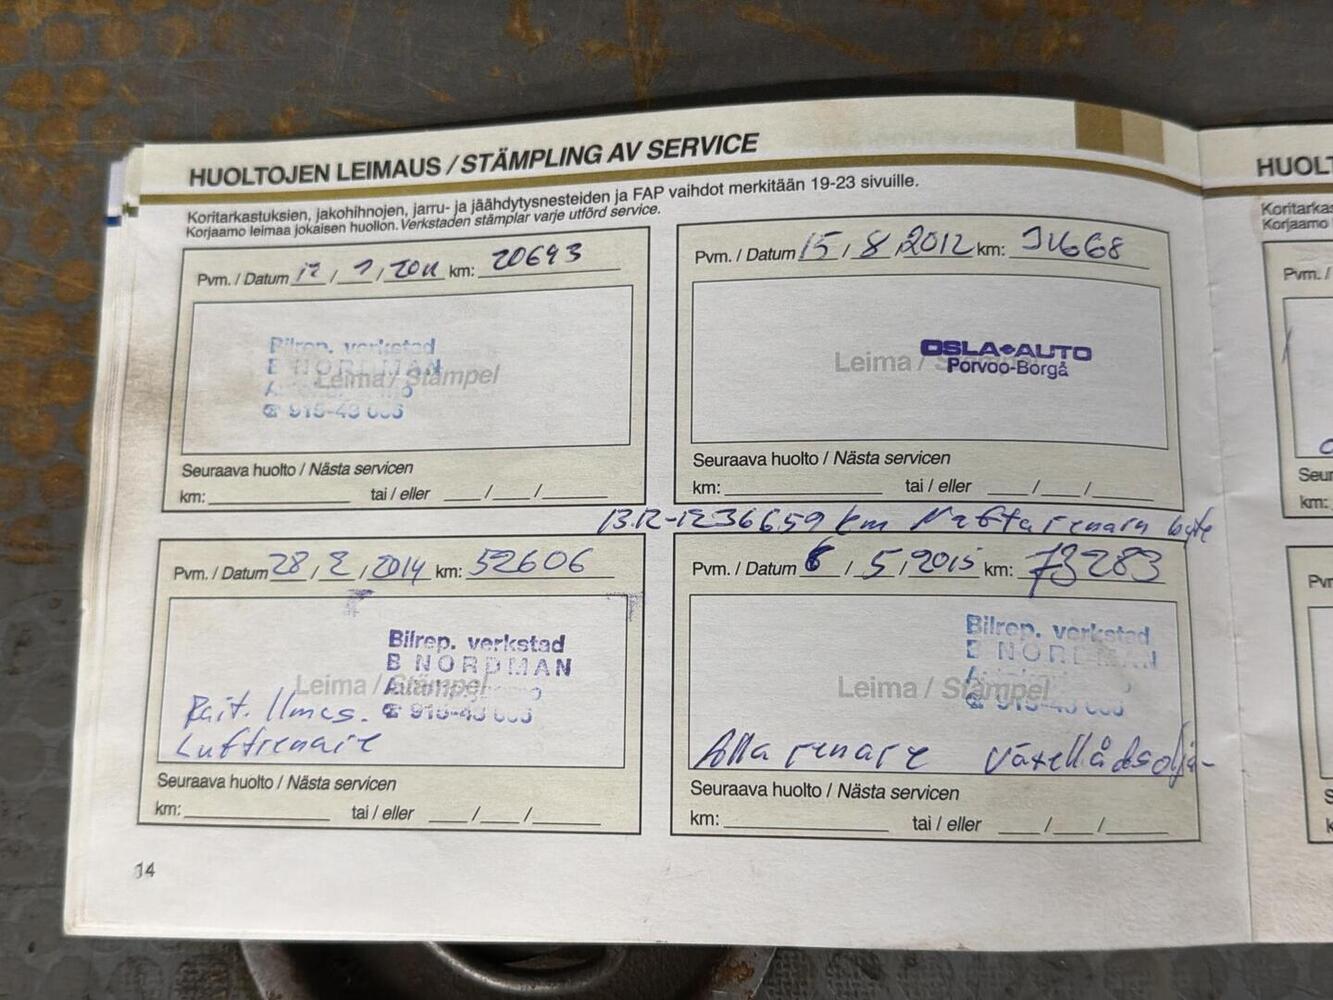 HUOLTOJEN LEIMAUS / STÄMPLING AV SERVICE
Koritarkastuksien, jakohihnojen, jarru- ja jäähdytysnesteiden ja FAP vaihdot merkitään 19-23 sivuille.
Korjaamo leimaa jokaisen huollon. Verkstaden stämplar varje utförd service.
Pvm. / Datum 12 / 1 / 2011 km: 20693
Bilrep. verkstad
B NORDMAN
Leima / Stämpel
Seuraava huolto / Nästa servicen
km: tai / eller / /
Pvm. / Datum 15 / 8 / 2012 km: 34668
OSLA AUTO
Leima /
Porvoo-Borgå
Seuraava huolto / Nästa servicen
km: tai / eller / /
13.12-12 36659 km byte
Pvm. / Datum 28 / 2 / 2014 km: 52606
Bilrep. verkstad
B NORDMAN
Leima / Stämpel
Rait. Ilmas.
Luftrenare
Seuraava huolto / Nästa servicen
km: tai / eller / /
Pvm. / Datum 6 / 5 / 2015 km: 73283
Bilrep. verkstad
B NORDMAN
Leima / Stämpel
Alla renare Växellådsolja-
Seuraava huolto / Nästa servicen
km: tai / eller / /
14
HUOLT
Koritarkas
Korjaamo
Pvm. /
Seu
km: